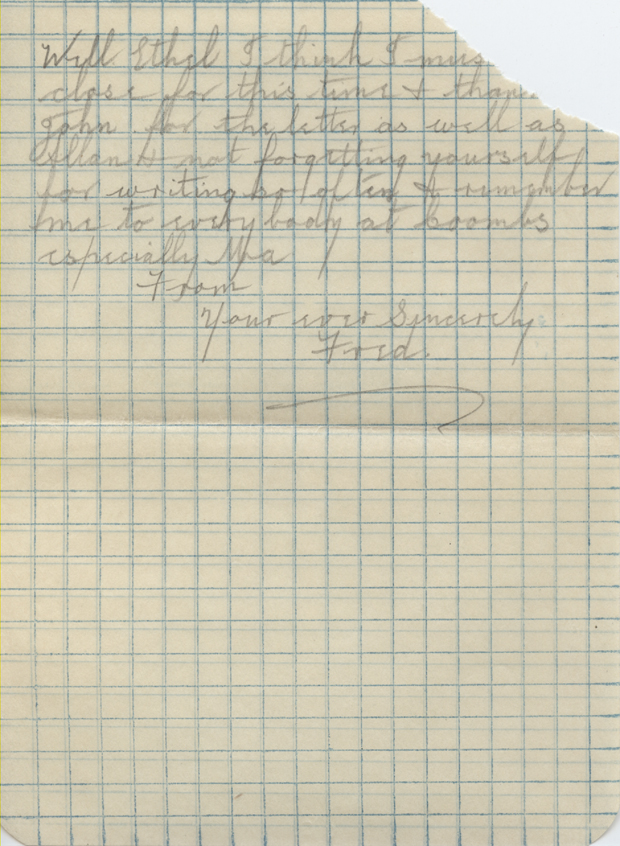 Well Ethel I think I mus
close for this time & than
John for the letter as well as
Allan & not forgetting yourself
for writing so often & remember
me to everybody at Coombs
especially Ma
From
Your ever Sincerely
Fred.